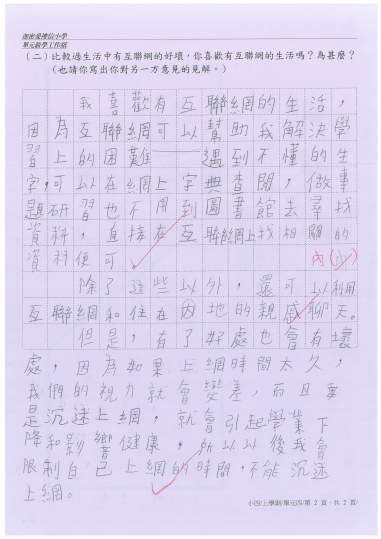 迦密愛禮信小學
單元教學工作紙
(二)比較過生活中有互聯網的好壞,你喜歡有互聯網的生活嗎?為甚麼?
(也請你寫出你對另一方意見的見解。)
我喜歡有互聯網的生活,
因為互聯網可以幫助我解決學
習上的困難——遇到不懂的生
字,可以在網上字典查閱,做專
題研習也不用到圖書館去尋找
資料,直接在互聯網上找相關的
資料便可。
內(✓)
除了這些以外,還可以利用
互聯網和住在內地的親戚聊天。
但是,有了好處也會有壞
處,因為如果上網時間太久,
我們的視力就會變差,而且要
是沉迷上網,就會引起學業下
降和影響健康,所以以後我會
限制自己上網的時間,不能沉迷
上網。
小四/上學期/單元四/第 2 頁,共 2 頁/